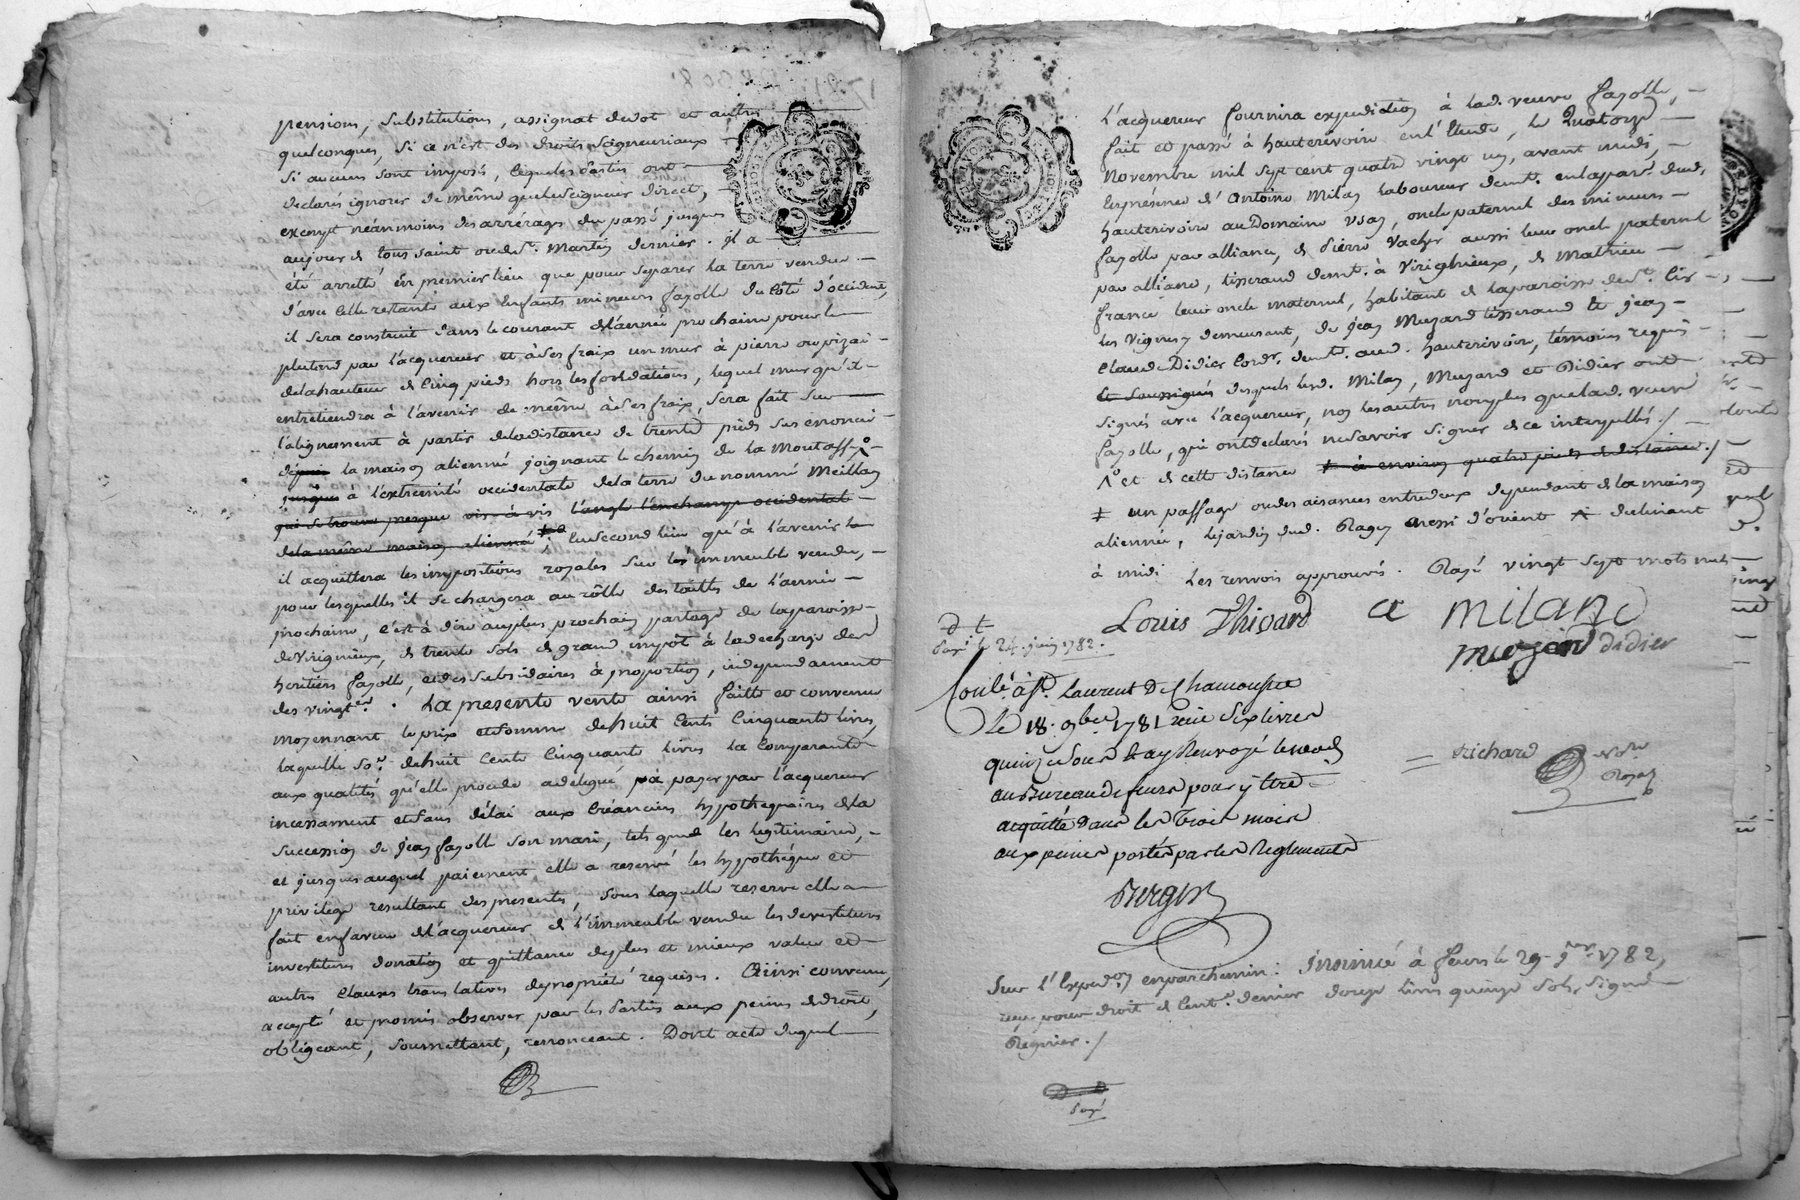 pensions, substitutions, assignat de dot et autres
quelconques, si ce n'est des droits seigneuriaux
si aucuns sont imposés, lesquels parties ont
declarés ignorer de même que le seigneur direct,
exempt néanmoins des arrérages du passé jusques
aujour de tous saint ou de st. Martin dernier. Il a
été arretté en premier lieu que pour separer la terre vendue
d'avec celle restante aux enfants mineurs fayolle du coté d'occident,
il sera construit dans le courant de l'année prochaine pour le
plutard par l'acquereur et à ses fraix un mur à pierre ou pizai
de la hauteur de cinq pieds hors les fondations, lequel mur qu'il
entretiendra à l'avenir de même à ses fraix, sera fait sur
l'alignement à partir de la distance de trente pieds sus enoncée
depuis la maison alienné joignant le chemin de la
jusques à l'extremité occidentale de la terre du nommé Meillan
qui se trouve presque vis-à-vis l'angle occidental
de la même maison alienné. En second lieu qu'à l'avenir
il acquittera les impositions royales sur les immeuble vendu,
pour lesquelles il se chargera au rôlle des tailles de l'année
prochaine, c'est à dire au plus prochain partage de la paroisse
de Virigneux, de trente sols de grand impôt à la decharge des
heritiers fayolle, et des subsidaires à proportion, independament
des vingt.es. La presente vente ainsi faitte et convenue
moyennant le prix et somme de huit cents cinquante livres,
laquelle so.e de huit cents cinquante livres la comparante
aux qualités qu'elle procede a delegué pa payer par l'acquereur
incessament et sans délai aux créanciers hypothequaires de la
succession de jean fayolle son mari, tels que les legitimaires,
et jusques auquel paiement elle a reservé les hypothéque et
privilege resultant des presentes, sous laquelle reserve elle a
fait en faveur de l'acquereur de l'immeuble vendu les devestitures
investitures donation et quittance de plus et mieux value et
autres clauses translatives de propriété requises. Ainsi convenu,
accepté et promis observer par les parties aux peines de droit,
obligeant, soumettant, renonceant. Dont acte duquel
L'acquereur fournira expedition à lad. veuve fayolle,
fait et passé à hauterivoire en l'étude, le Quatorze
Novembre mil sept cent quatre vingt un, avant midi,
En présence d'Antoine Milan laboureur demt. en la par. dud.
hauterivoire au Domaine, oncle paternel des mineurs
fayolle par alliance, de Pierre Vacher aussi leur oncle paternel
par alliance, tisserand demt. à Virigneux, de Mathieu
france leur oncle maternel, habitant de la paroisse de st. Cir
les Vignes y demeurant, de jean Muzard tisserand et jean
Claude Didier cordr. demts. aud. hauterivoire, témoins requis
et soussignés desquels lesd. Milan, Muzard et Didier ont
signés avec l'acquereur, non les autres non plus que lad. veuve
fayolle, qui ont declarés ne savoir signer de ce interpellés./
et de cette distance à environ quatre pieds de distance./
un passage ou des aisances entredeux dependant de la maison
aliennée, le jardin dud. Ragey aussi d'orient declinant
à midi Les renvois approuvés. Rayé vingt sept mots nuls
Louis Thivard a miland
muzard didier
D t
Payé le 24 juin 1782.
Conlé. à St. Laurent De Chamousset
Le 18. 9bre 1781 reçu six livres
quinze sous et ay renvoyé le
au Bureau de feurs pour y être
acquitté dans les trois mois
aux peines portés par les Reglements
Berger
Richard
Sur l'Exped.on en parchemin: Insinué à feurs le 29 1782,
reçu pour droit de cent.e denier douze livres quinze sols, signé
Regnier./
payé